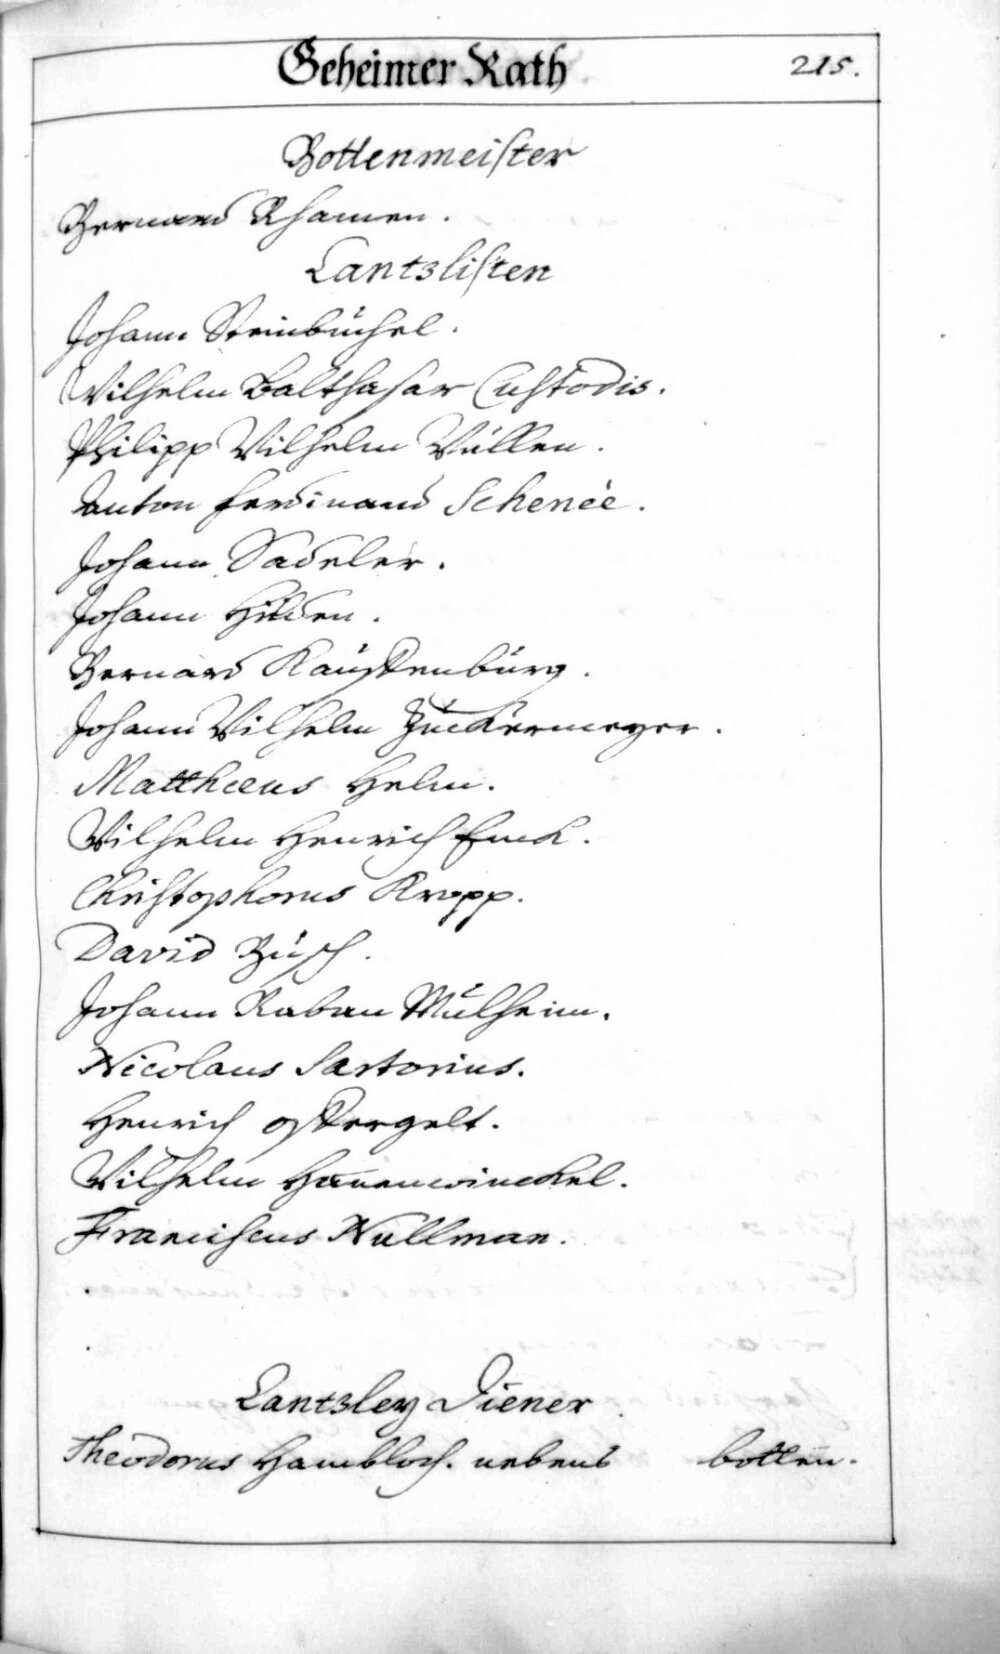 Geheimer Rath 215.
Bottenmeister
Bernard Rhamen.
Cantzlisten
Johann Steinbüchel.
Wilhelm Balthasar Custodis.
Philipp Wilhelm Wüllen.
Anton Ferdinand Schenèe.
Johann Sadeler.
Johann Hilden.
Bernard Kauffenbürg.
Johann Wilhelm Zückermeyer.
Matthæus Helm.
Wilhelm Henrich Finck.
Christophorus Kropp.
David Büsch.
Johann Raban Mülheim.
Nicolaus Sartorius.
Henrich Ostergelt.
Wilhelm Hauenwinckel.
Franciscus Nullman.
Cantzley Diener
Theodorus Hambloch. nebens botten.